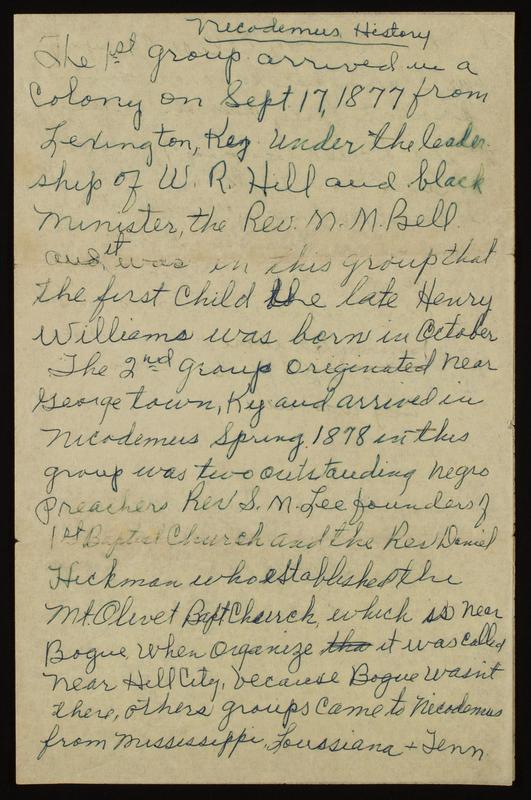 Nicodemus History
The 1st group arrived in a
Colony on Sept. 17, 1877 from
Lexington, Key under the leader
ship of W. R. Hill and black
minister, the Rev. M. M. Bell
and it was in this group that
the first child the late Henry
Williams was born in October
The 2nd group originated near
Georgetown, Ky and arrived in
Nicodemus Spring, 1878 in this
group was two outstanding negro
Preachers Rev S. M. Lee founders of
1st Baptist Church and the Rev Daniel
Hickman who established the
Mt. Olivet Bapt Church, which is near
Bogue. When organize tha it was called
near Hill City, because Bogue wasn't
there, others groups came to Nicodemus
from Mississippi, Loussiana + Tenn.